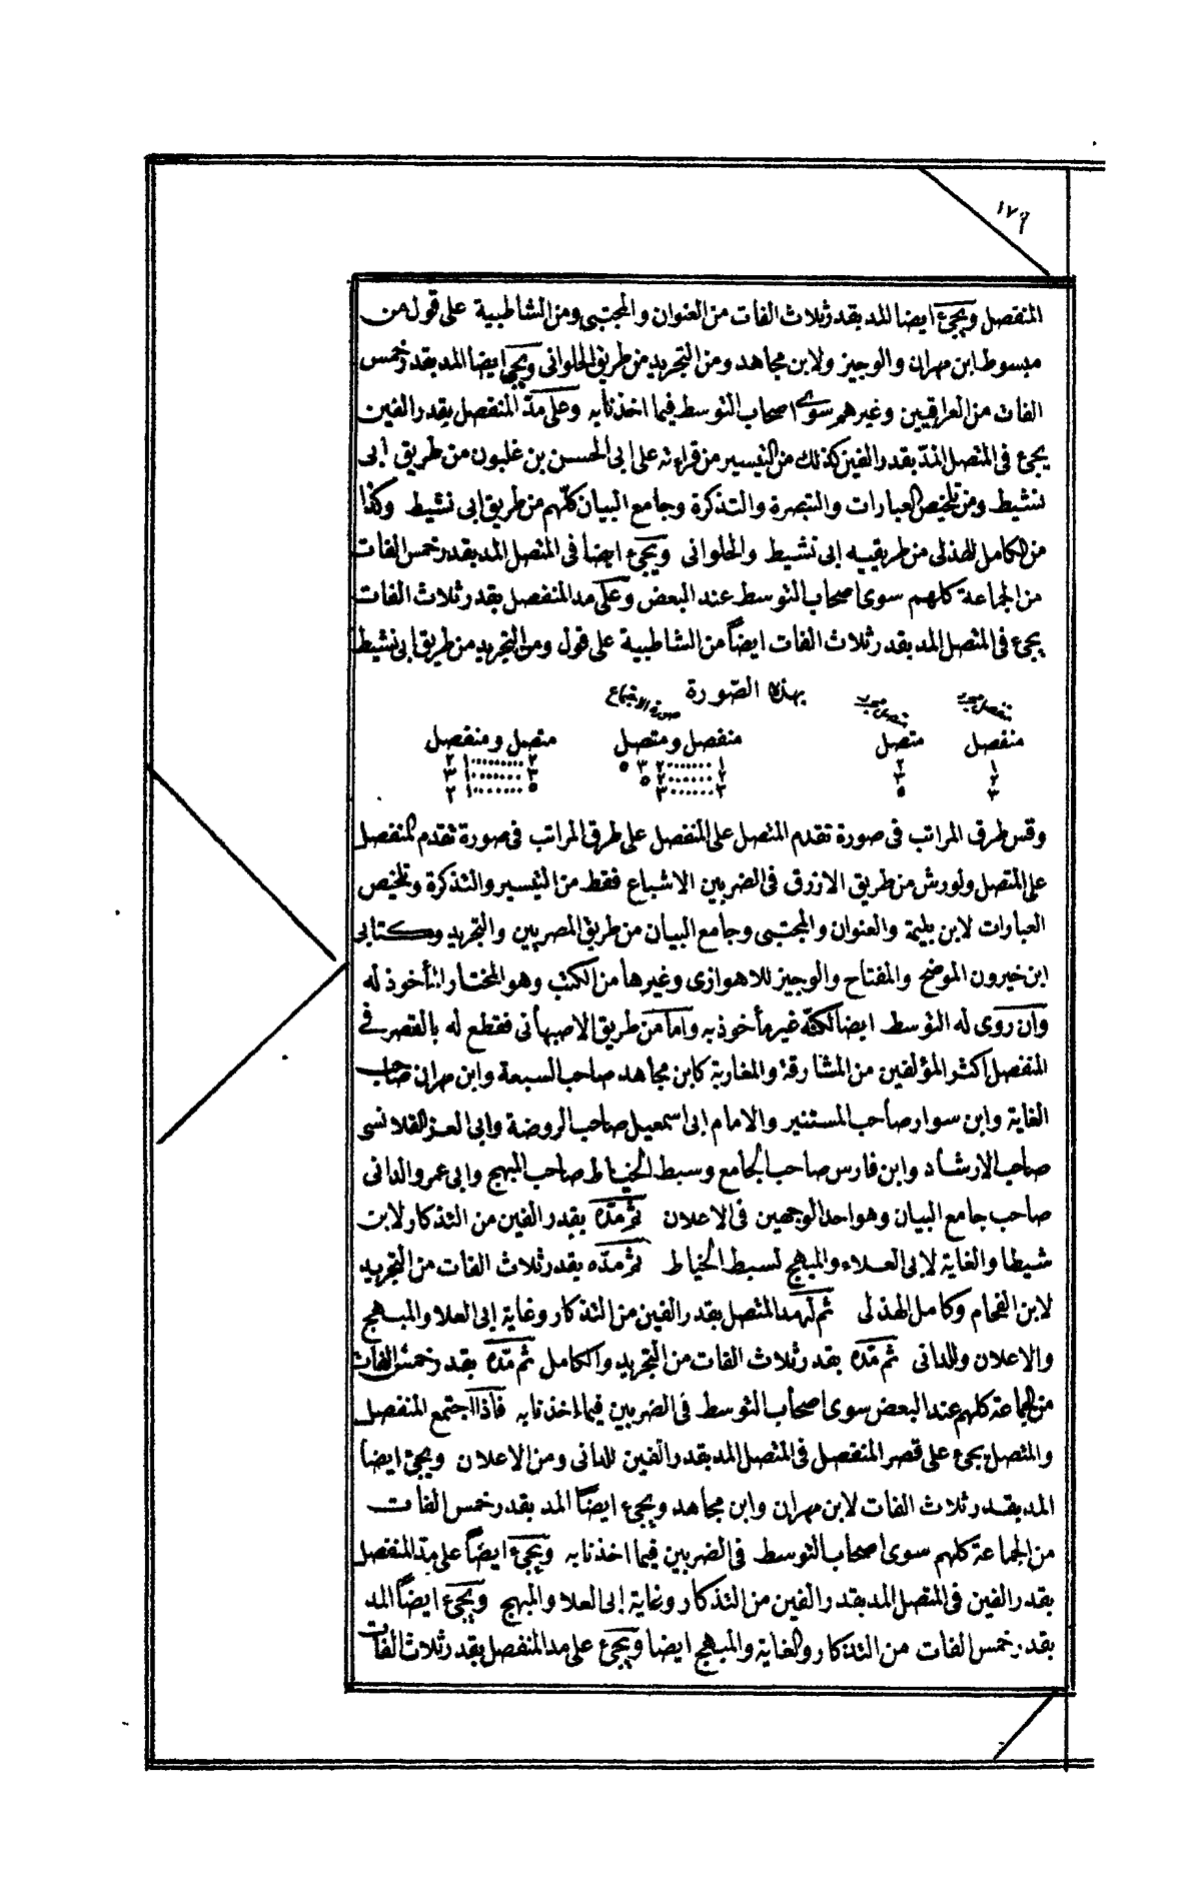 ١٧٩
المنفصل ويجئ ايضا المد بقدر ثلاث الفات من العنوان والمجتبى ومن الشاطبية على قول من
مبسوط ابن مهران والوجيز ولابن مجاهد ومن التجريد من طريق الحلوانى ويجئ ايضا المد بقدر خمس
الفات من العراقيين وغيرهم سوى اصحاب التوسط فيما اخذنا به وعلى مد المنفصل بقدر الفين
يجئ فى المتصل المد بقدر الفين كذلك من التيسير من قراءته على ابى الحسن بن غلبون من طريق ابى
نشيط ومن تلخيص العبارات والتبصرة والتذكرة وجامع البيان كلهم من طريق ابى نشيط وكذا
من الكامل للهذلى من طريقيه ابى نشيط والحلوانى ويجئ ايضا فى المتصل المد بقدر خمس الفات
من الجماعة كلهم سوى اصحاب التوسط عند البعض وعلى مد المنفصل بقدر ثلاث الفات
يجئ فى المتصل المد بقدر ثلاث الفات ايضاً من الشاطبية على قول ومن التجريد من طريق ابى نشيط
بهذه الصورة صورة الاجتماع
منفصل متصل منفصل ومتصل متصل ومنفصل
١ ٢ ١.......٢ ٣ ٥ ٢.......١ ٢
٢ ٣ ٢.......٢ ٥ ٣.......١ ٣
٣ ٥ ٣.......٣ ٥.......١ ٢
وقس طرق المراتب فى صورة تقدم المتصل على المنفصل على طرق المراتب فى صورة تقدم المنفصل
على المتصل ولورش من طريق الازرق فى الضربين الاشباع فقط من التيسير والتذكرة وتلخيص
العبارات لابن بليمة والعنوان والمجتبى وجامع البيان من طريق المصريين والتجريد وكتابى
ابن خيرون الموضح والمفتاح والوجيز للاهوازى وغيرها من الكتب وهو المختار المأخوذ له
وان روى له التوسط ايضا لكنه غير مأخوذ به واما من طريق الاصبهانى فقطع له بالقصر فى
المنفصل اكثر المؤلفين من المشارقة والمغاربة كابن مجاهد صاحب السبعة وابن مهران صاحب
الغاية وابن سوار صاحب المستنير والامام ابى اسمعيل صاحب الروضة وابى العز القلانسى
صاحب الارشاد وابن فارس صاحب الجامع وسبط الخياط صاحب المبهج وابى عمرو الدانى
صاحب جامع البيان وهو احد الوجهين فى الاعلان ثم مده بقدر الفين من التذكار لابن
شيطا والغاية لابى العلاء والمبهج لسبط الخياط ثم مده بقدر ثلاث الفات من التجريد
لابن الفحام وكامل الهذلى ثم له مد المتصل بقدر الفين من التذكار وغاية ابى العلا والمبهج
والاعلان وللدانى ثم مده بقدر ثلاث الفات من التجريد والكامل ثم مده بقدر خمس الفات
من الجماعة كلهم عند البعض سوى اصحاب التوسط فى الضربين فيما اخذنا به فاذا اجتمع المنفصل
والمتصل يجئ على قصر المنفصل فى المتصل المد بقدر الفين للدانى ومن الاعلان ويجئ ايضا
المد بقدر ثلاث الفات لابن مهران وابن مجاهد ويجئ ايضاً المد بقدر خمس الفات
من الجماعة كلهم سوى اصحاب التوسط فى الضربين فيما اخذنا به ويجئ ايضاً على مد المنفصل
بقدر الفين فى المتصل المد بقدر الفين من التذكار وغاية ابى العلا والمبهج ويجئ ايضاً المد
بقدر خمس الفات من التذكار والغاية والمبهج ايضا ويجئ على مد المنفصل بقدر ثلاث الفات